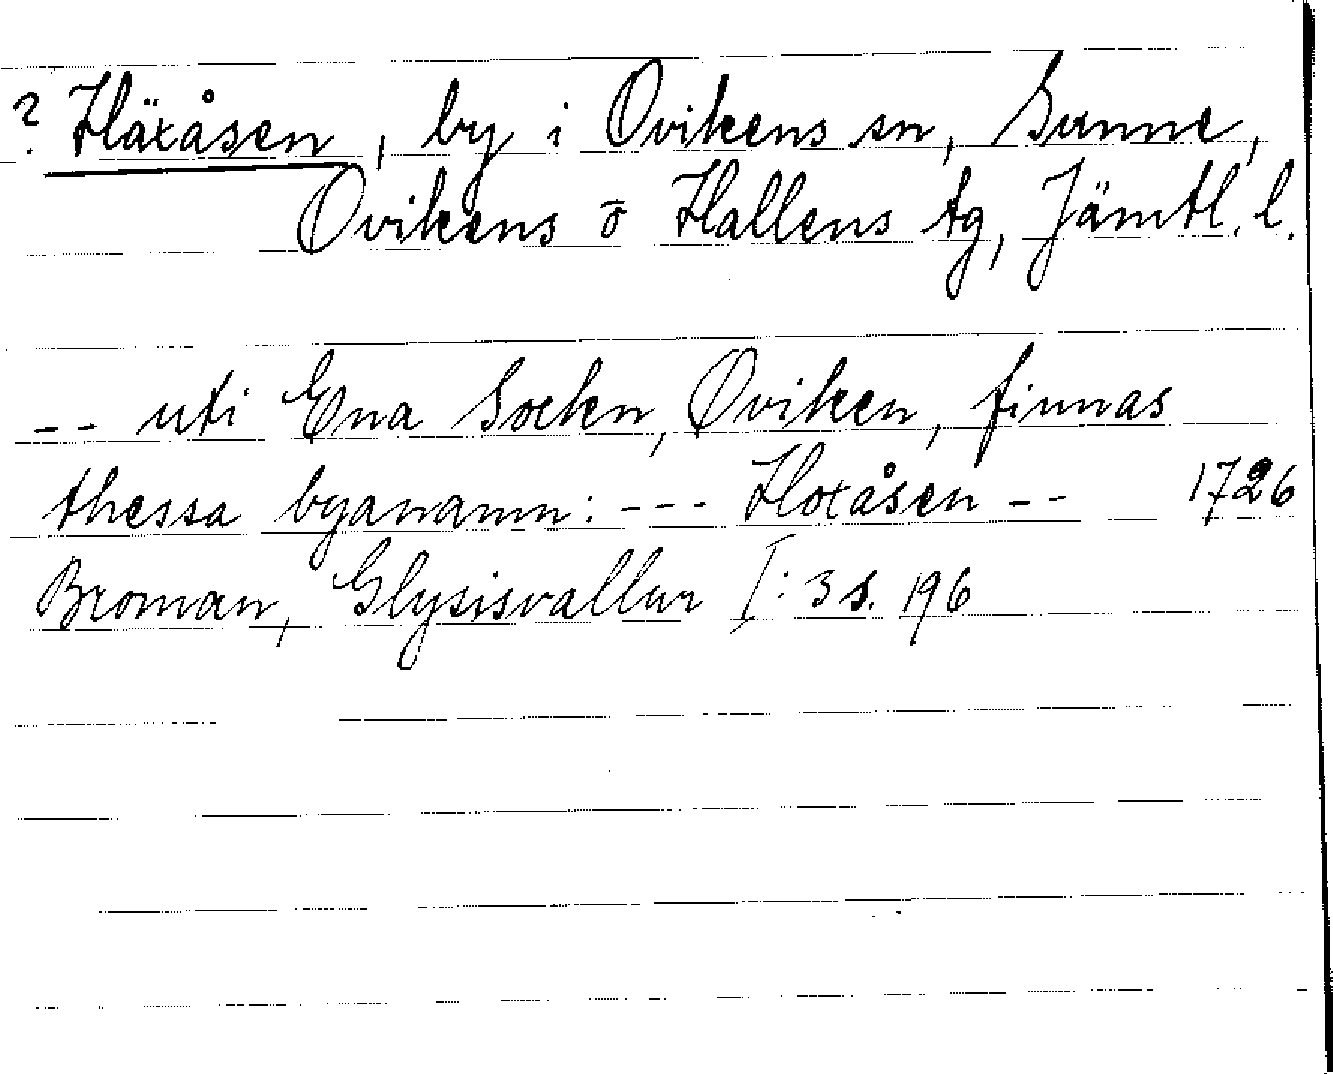 ? Häxåsen, by i Ovikens sn, Sunne,
Ovikens o Hallens tg, Jämtl. l.
-- uti Ena Sockn, Oviken, finnas
thessa byanamn: --- Hoxåsen -- 1726
Broman, Glysisvallur I: 3 s. 196